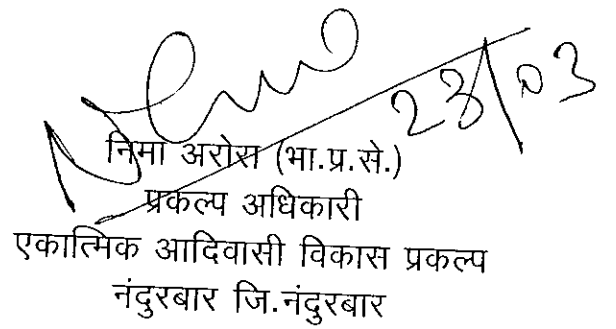 23/03
निमा अरोरा (भा.प्र.से.)
प्रकल्प अधिकारी
एकात्मिक आदिवासी विकास प्रकल्प
नंदुरबार जि.नंदुरबार